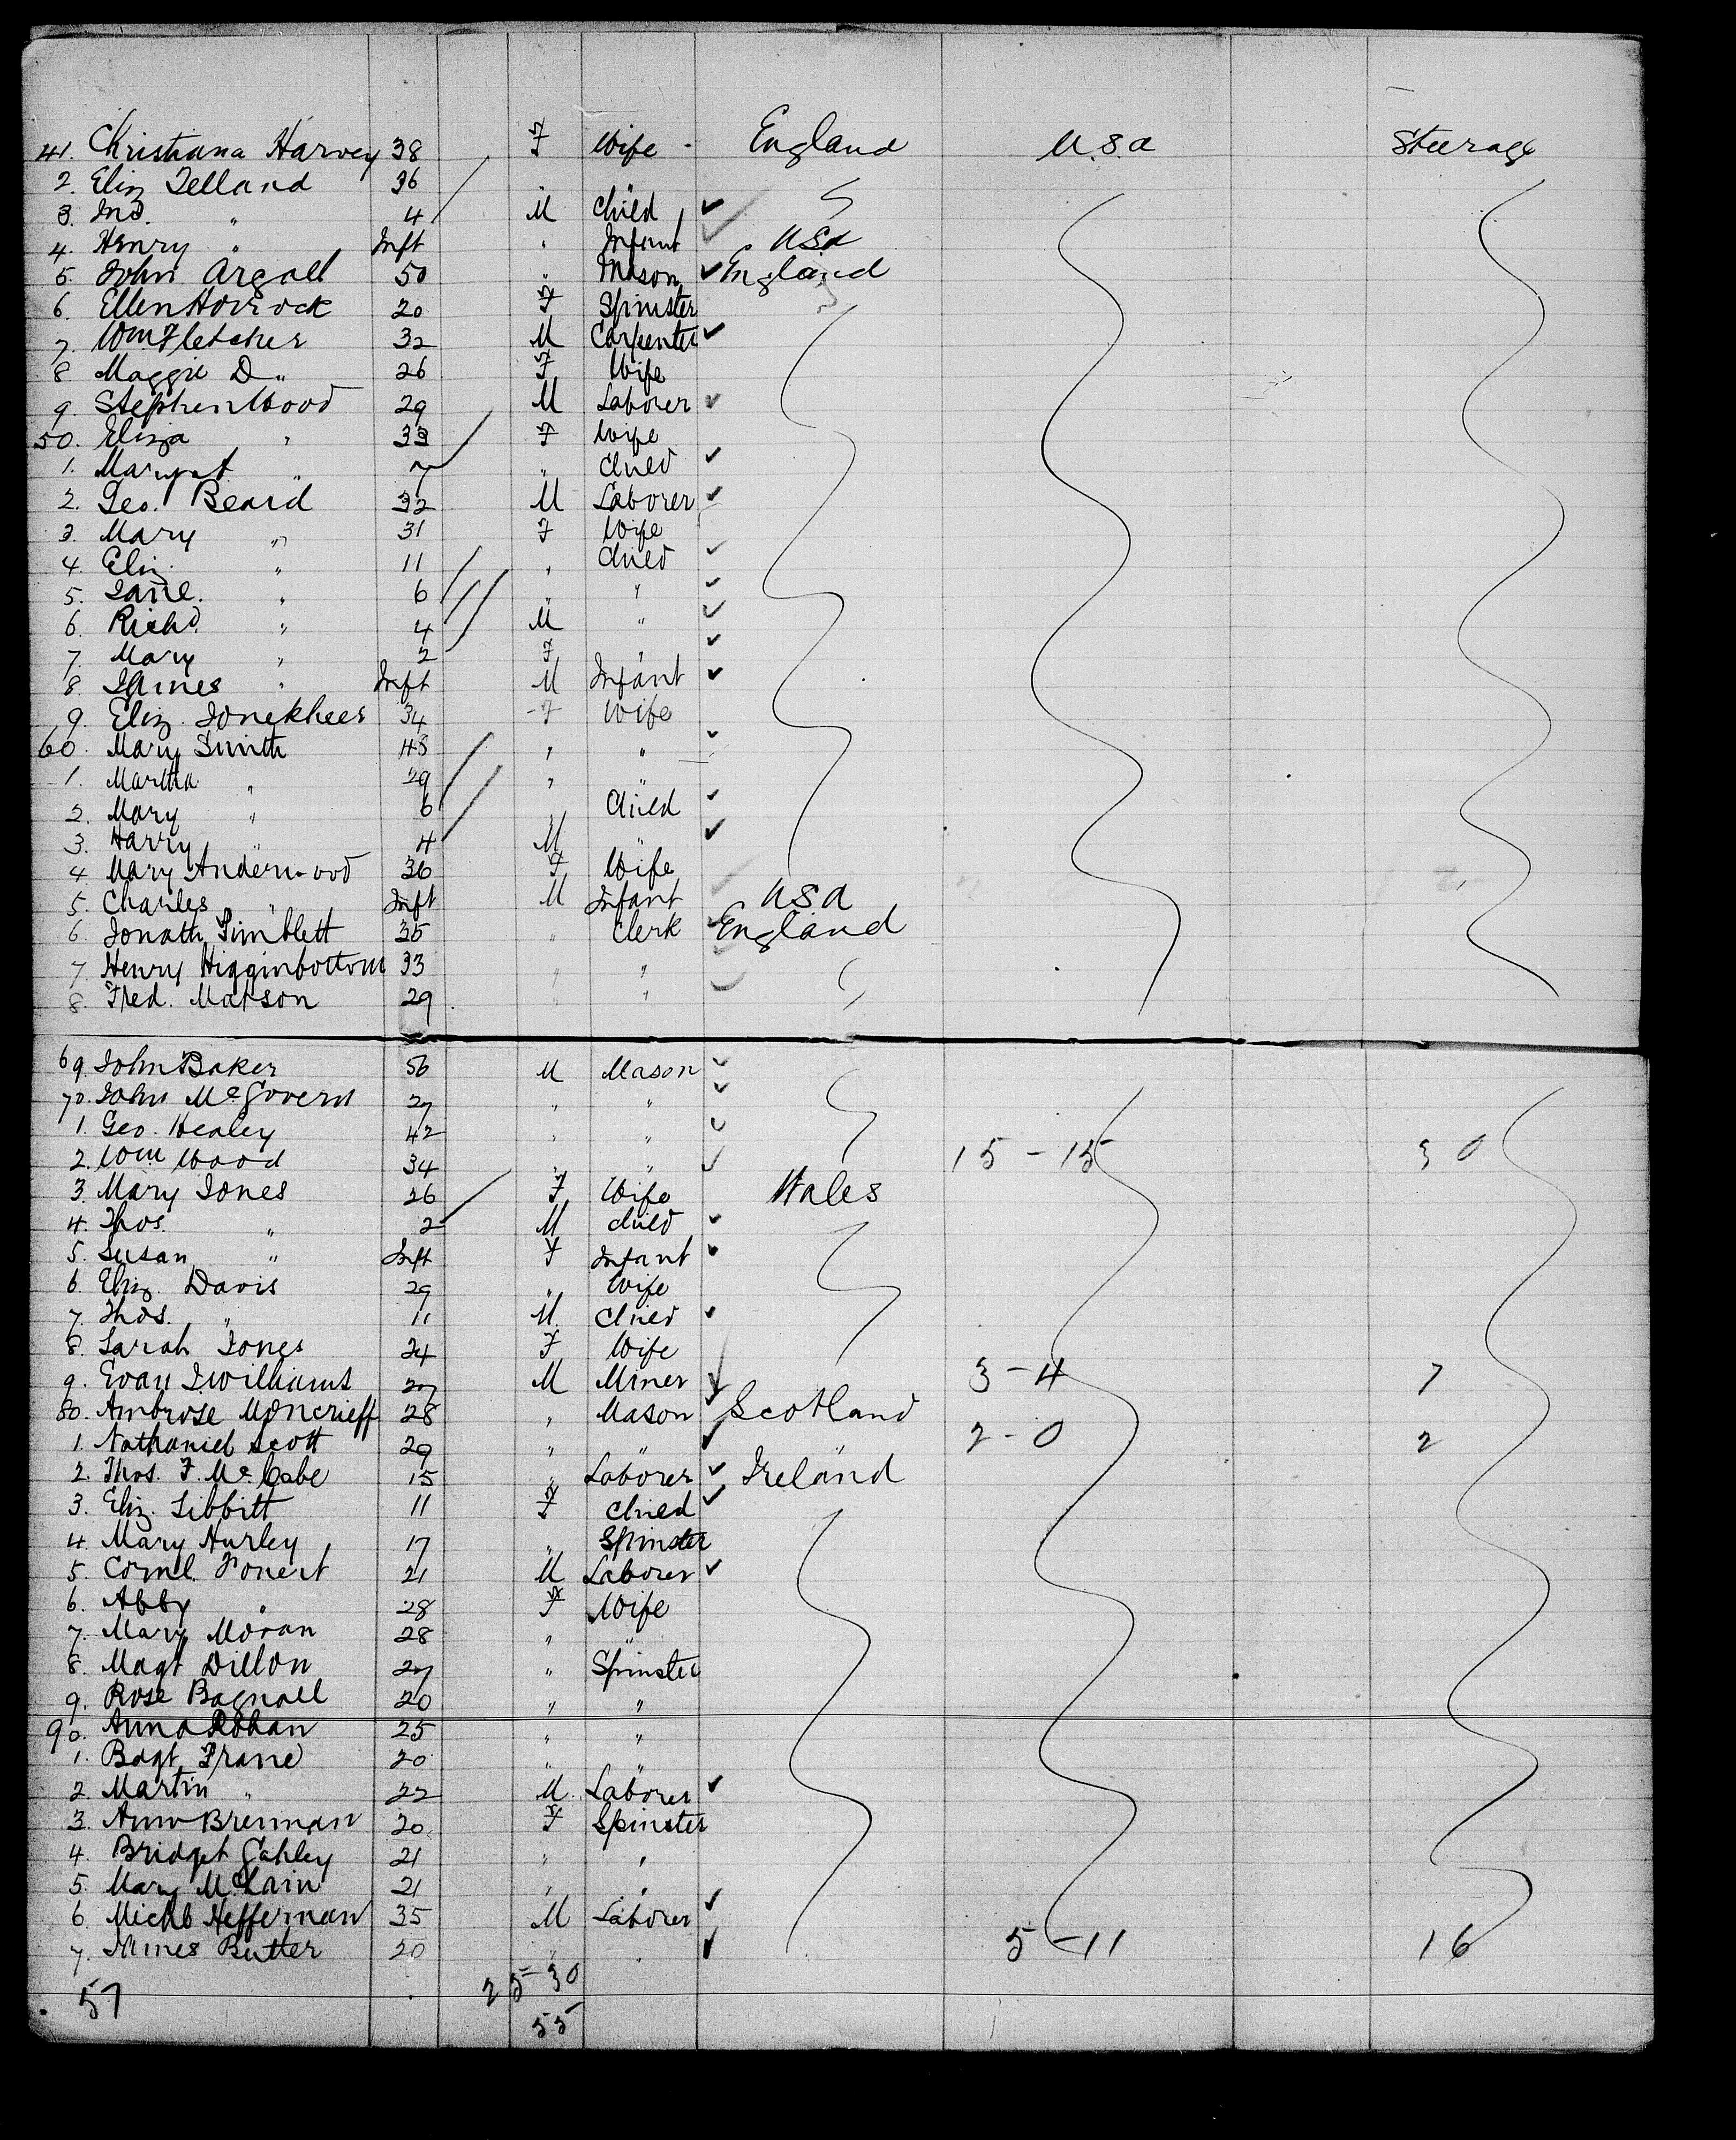 41. Christiana Harvey 38 F Wife - England U.S.A Steerage
2. Eliz Telland 36 " "
3. Jno. " 4 M Child
4. Henry " Inft " Infant USA
5. John Argall 50 " Mason England
6. Ellen Horrock 20 F Spinster
7. Wm Fletcher 32 M Carpenter
8. Maggie D " 26 F Wife
9. Stephen Wood 29 M Laborer
50. Eliza " 33 F Wife
1. Margat " 7 " Child
2. Geo. Beard 32 M Laborer
3. Mary " 31 F Wife
4. Eliz " 11 " Child
5. Jane. " 6 " "
6. Richd. " 4 M "
7. Mary " 2 F "
8. James " Inft M Infant
9. Eliz. Jonekheer 34 F Wife
60. Mary Smith 48 " "
1. Martha " 29 " "
2. Mary " 6 " Child
3. Harry " 4 M "
4 Mary Anderwood 36 F Wife
5. Charles " Inft M Infant USA
6. Jonath Timblett 35 " Clerk England
7 Henry Higginbottom 33 " "
8. Fred. Matson 29 " "
69. John Baker 56 M Mason
70. John McGovern 27 " "
1. Geo. Healey 42 " "
2. Wm Wood 34 " " 15 - 15 30
3. Mary Jones 26 F Wife Wales
4. Thos. " 2 M Child
5. Susan " Inft F Infant
6. Eliz. Davis 29 " Wife
7. Thos. " 11 M. Child
8. Sarah Jones 24 F Wife
9. Evan Williams 27 M Miner 3 - 4 7
80. Ambrose Moncrieff 28 " Mason Scotland
1. Nathaniel Scott 29 " " 2 - 0 2
2. Thos. F. McCabe 15 " Laborer Ireland
3. Eliz. Tibbitt 11 F Child
4. Mary Hurley 17 " Spinster
5. Cornl. Fonert 21 M Laborer
6. Abby " 28 F Wife
7. Mary Moran 28 " "
8. Magt Dillon 27 " Spinster
9. Rose Bagnall 20 " "
90. Anna Rohan 25 " "
1. Bdgt Frane 20 " "
2. Martin " 22 M Laborer
3. Ann Brennan 20 F Spinster
4. Bridget Gahley 21 " "
5. Mary McLain 21 " "
6. Michl Heffernan 35 M Laborer
7. James Butter 20 " " 5 - 11 16
57 25 - 30
55